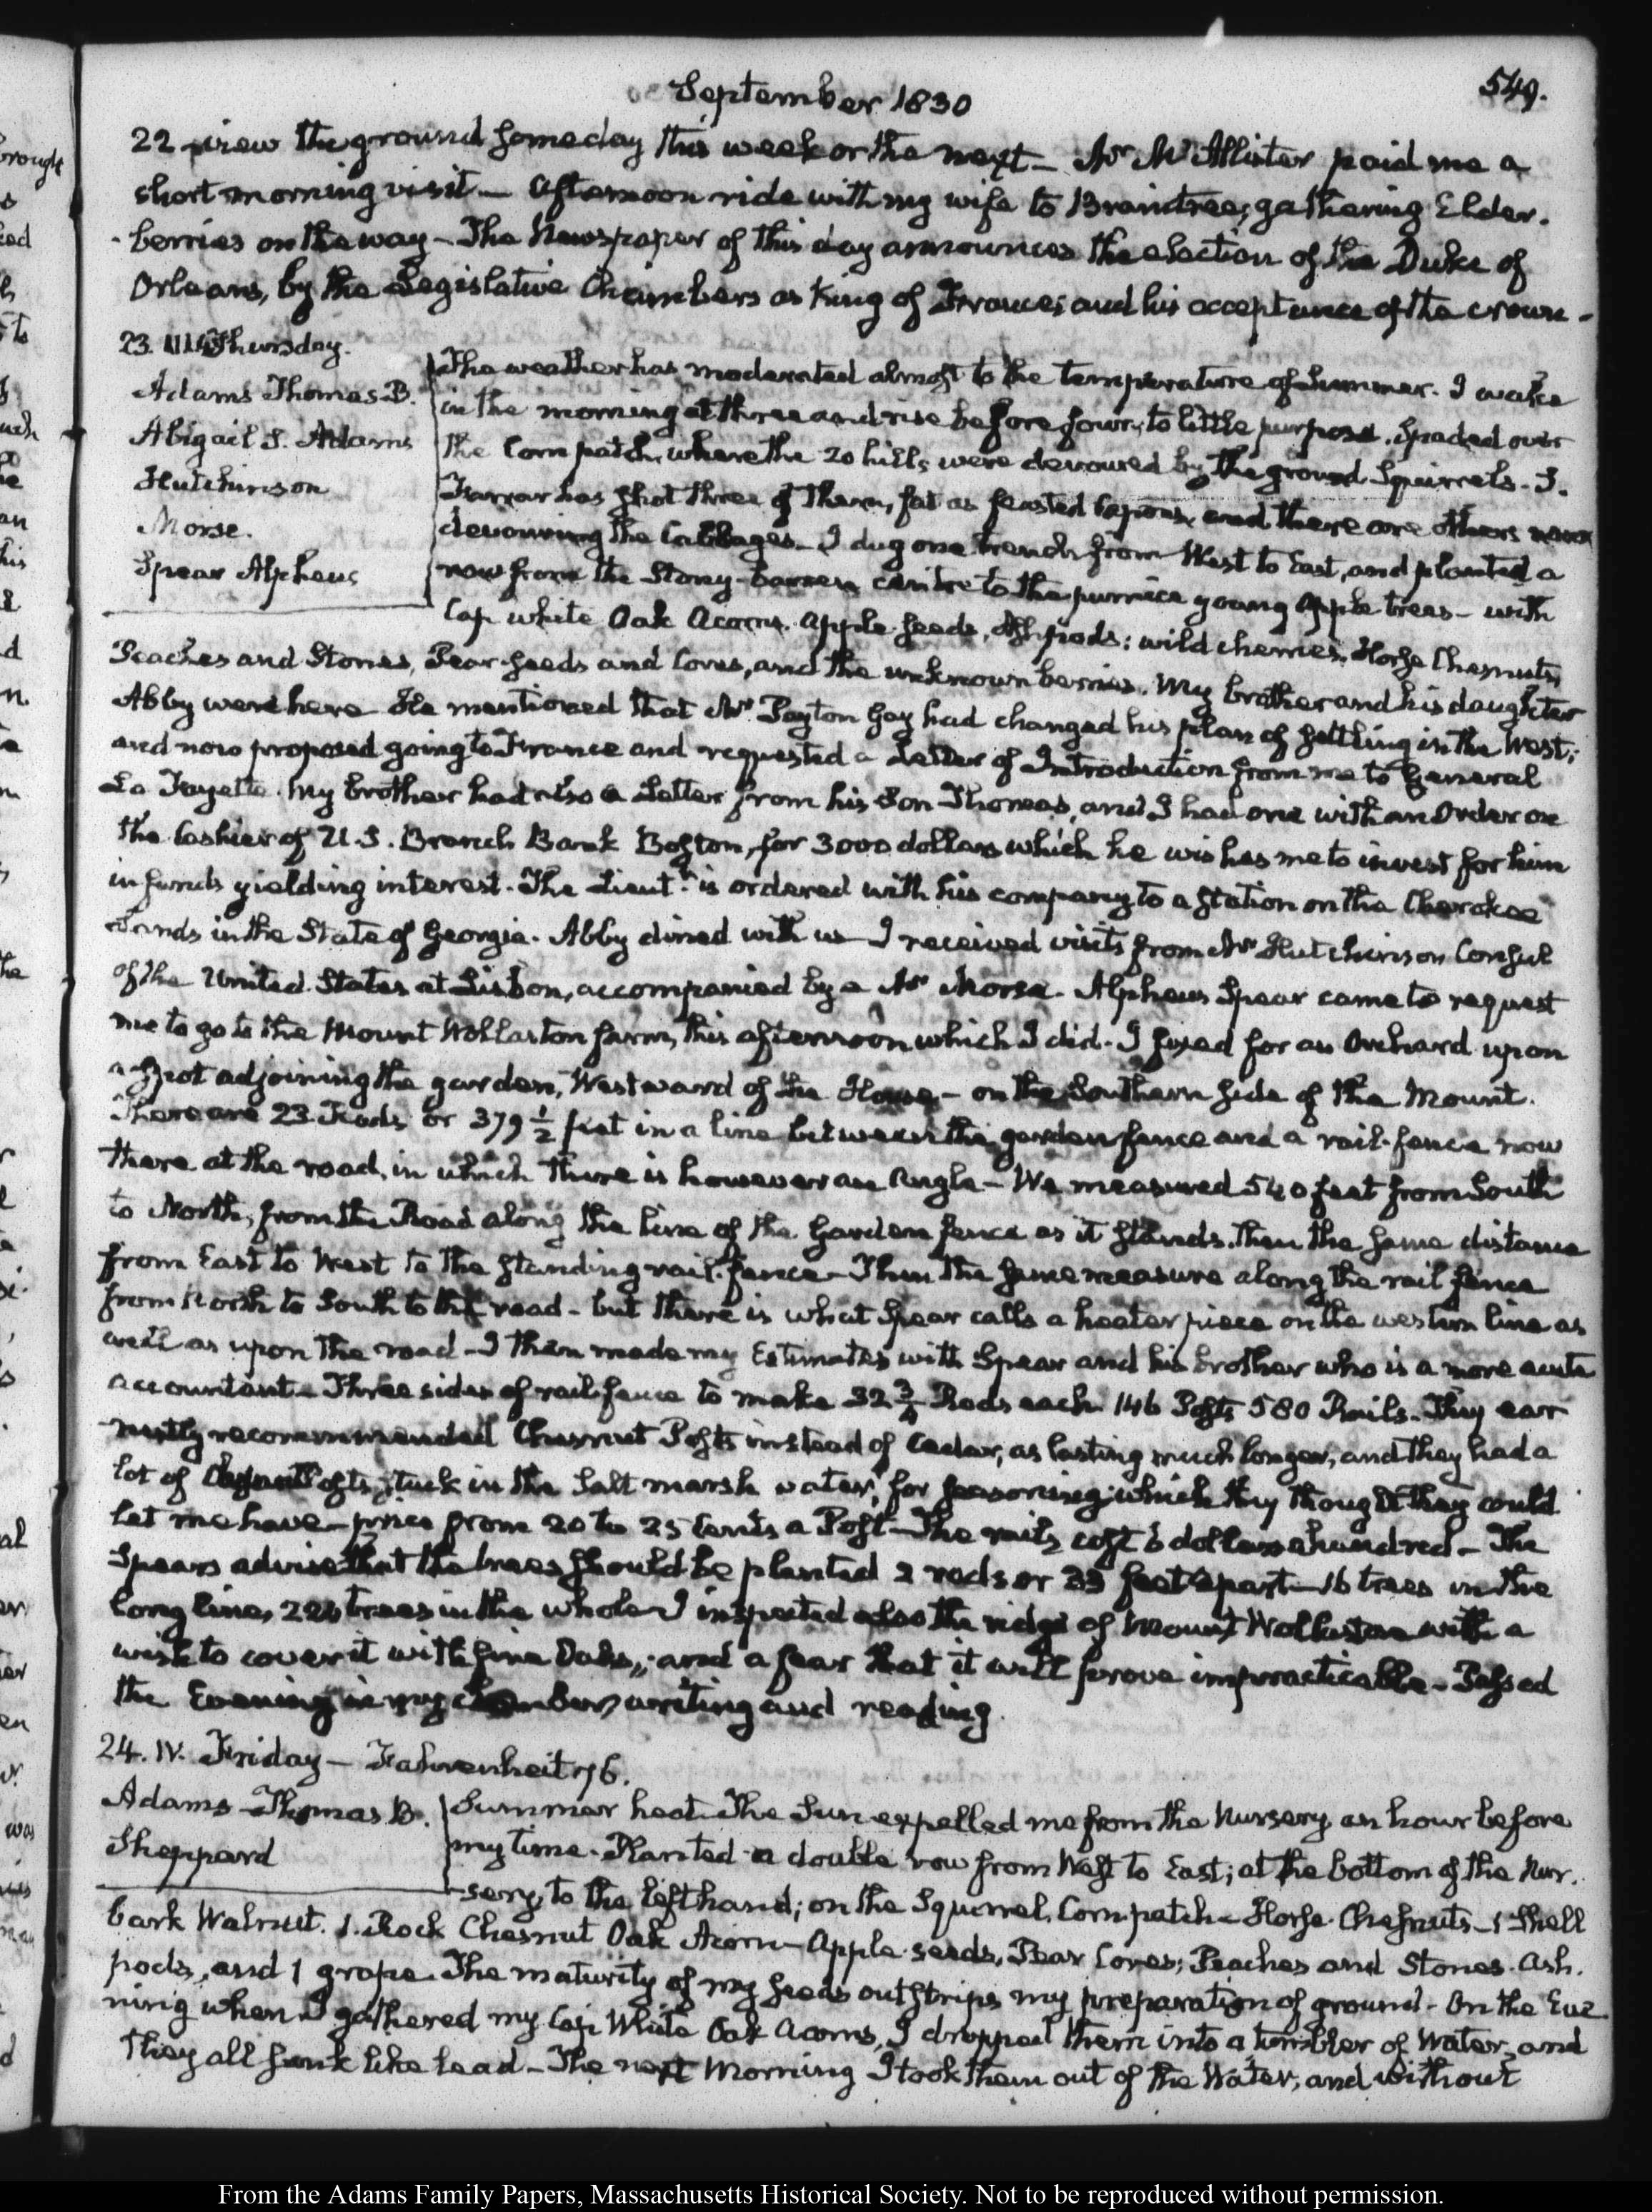 September 1830
549.
22 view the ground some day this week or the next — Mr McAllister paid me a
short morning visit — Afternoon ride with my wife to Braintree; gathering Elder-
-berries on the way — The Newspaper of this day announces the election of the Duke of
Orleans, by the Legislative Chambers as King of France; and his acceptance of the crown.
23. Thursday.
Adams Thomas B.
Abigail S. Adams
Hutchinson
Morse.
Spear Alpheus
The weather has moderated almost to the temperature of summer. I wake
in the morning at three and rise before four, to little purpose. Spaded over
the Corn patch, where the 20 hills were devoured by the ground Squirrels. J.
Farrar has shot three of them, fat as feasted Capons, and there are others now
devouring the Cabbages — I dug one trench from West to East, and planted a
row from the Stony-barren centre to the young Apple trees — with
Cap white Oak Acorns. Apple seeds, Ash pods: wild cherries, Horse Chesnuts,
Peaches and Stones, Pear-seeds and Cores, and the unknown berries. My brother and his daughter
Abby were here. He mentioned that Mr Payton Gay had changed his plan of settling in the West;
and now proposed going to France and requested a Letter of Introduction from me to General
La Fayette. My brother had also a Letter from his Son Thomas, and I had one with an Order on
the Cashier of U.S. Branch Bank Boston, for 3000 dollars which he wishes me to invest for him
in funds yielding interest. The Lieutt. is ordered with his company to a station on the Cherokee
Lands in the State of Georgia. Abby dined with us — I received visits from Mr Hutchinson Consul
of the United States at Lisbon, accompanied by a Mr Morse. Alpheus Spear came to request
me to go to the Mount Wollaston farm, this afternoon which I did. I fixed for an Orchard upon
a spot adjoining the garden, Westward of the House — on the Southern side of the Mount.
There are 23 Rods or 379 1/2 feet in a line between the garden fence and a rail-fence now
there at the road, in which there is however an Angle — We measured 540 feet from South
to North, from the Road along the line of the Garden fence as it stands. Then the same distance
from East to West to the standing rail-fence — Then the same measure along the rail fence
from North to South to the road — but there is what Spear calls a heater piece on the western line as
well as upon the road — I then made my Estimates with Spear and his brother who is a more acute
accountant — Three sides of rail-fence to make 32 3/4 Rods each 146 Posts 580 Rails. They ear
nestly recommended Chesnut Posts instead of Cedar, as lasting much longer, and they had a
lot of Chesnut Posts, stuck in the Salt marsh water, for seasoning which they thought they could
let me have — price from 20 to 25 Cents a Post — The rails cost 6 dollars a hundred — The
Spears advise that the trees should be planted 2 rods or 33 feet apart — 16 trees in the
long line, trees in the whole — I inspected also the ridge of Mount Wollaston with a
wish to cover it with fine Oaks, and a fear that it will prove impracticable — Passed
the Evening in my chamber, writing and reading
24. IV. Friday — Fahrenheit 76.
Adams — Thomas B.
Sheppard
Summer heat. The Sun expelled me from the Nursery an hour before
my time. Planted a double row from West to East; at the bottom of the Nur-
-sery, to the left hand; on the Squirrel, Corn patch — Horse Chesnuts — 1 Shell
bark Walnut. 1. Rock Chesnut Oak Acorn — Apple-seeds, Pear Cores; Peaches and Stones. Ash.
pods, and 1 grape. The maturity of my seeds outstrips my preparation of ground — On the Eve
ning when I gathered my Cap White Oak Acorns, I dropped them into a tumbler of Water, and
they all sunk like lead — The next Morning I took them out of the Water, and without
From the Adams Family Papers, Massachusetts Historical Society. Not to be reproduced without permission.